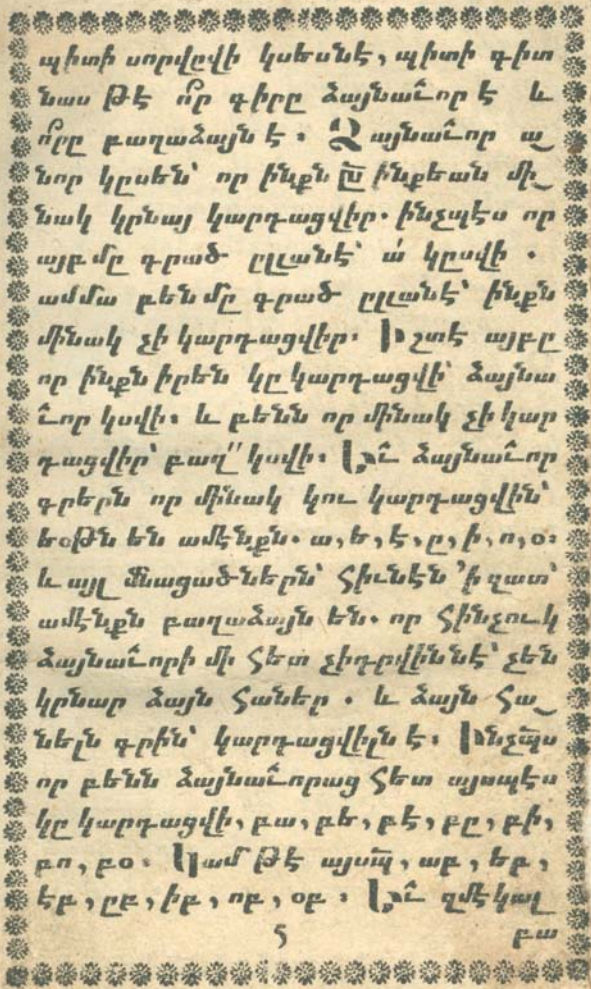 պիտի սորվըվի կսեսնէ, պիտի գիտ
նաս թէ ո՞ր գիրը ձայնաւ̂որ է և
ո՞րը բաղաձայն է։ Ձայնաւ̂որ ա֊
նոր կըսեն՝ որ ինքն ը ինքեան մի֊
նակ կրնայ կարդացվիր. ինչպէս որ
այբ մը գրած ըլլանէ՝ ա՛ կըսվի.
ամմա բեն մը գրած ըլլանէ՝ ինքն
մինակ չի կարդացվիր։ Իշտէ այբը
որ ինքն իրեն կը կարդացվի՝ ձայնա
ւ̂որ կսվի։ և բենն որ մինակ չի կար
դացվիր՝ բաղ՛՛ կսվի։ Եւ̂ ձայնաւ̂որ
գրերն որ մինակ կու կարդացվին՝
եօթն են ամէնքն. ա, ե, է, ը, ի, ո, օ։
և այլ մնացածներն՝ հիւնէն ՚ի զատ՝
ամէնքն բաղաձայն են. որ հինչուկ
ձայնաւ̂որի մի հետ չիդրվիննէ՝ չեն
կրնար ձայն հաներ. և ձայն հա֊
նելն գրին՝ կարդացվիլն է։ Ինչպ̃ս
որ բենն ձայնաւ̂որաց հետ այսպէս
կը կարդացվի, բա, բե, բէ, բը, բի,
բո, բօ. Կամ թէ այսպ̃, աբ, եբ,
էբ, ըբ, իբ, ոբ, օբ։ Եւ̂ զմէկալ
5 բա